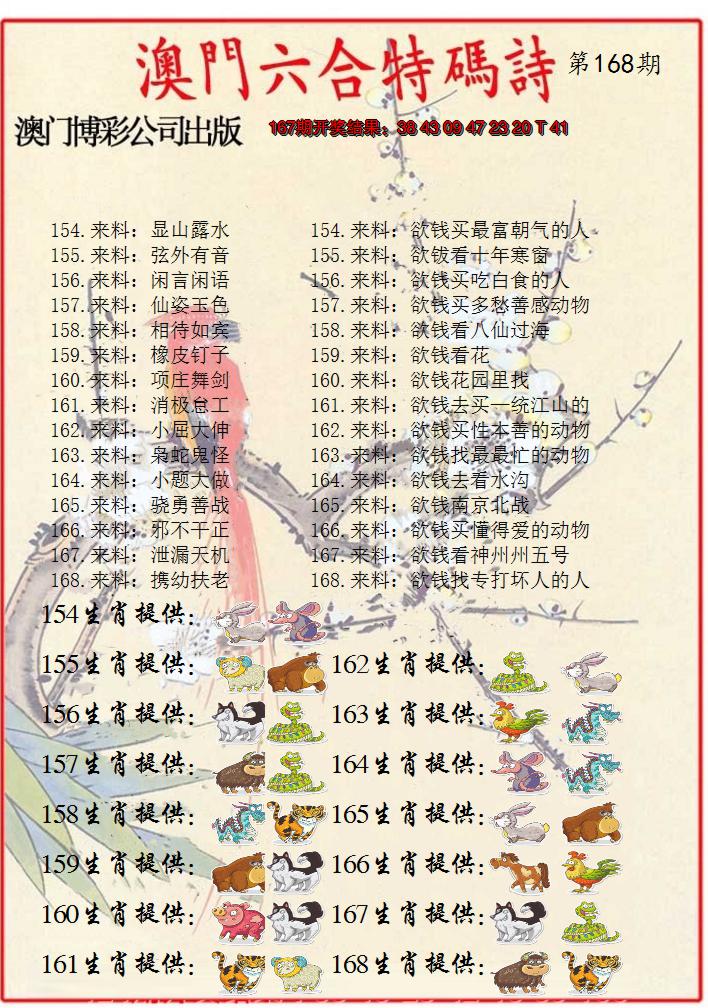 澳門六合特碼詩 第168期
澳门博彩公司出版 167期开奖结果：38 43 09 47 23 20 T 41
154.来料：显山露水 154.来料：欲钱买最富朝气的人
155.来料：弦外有音 155.来料：欲钹看十年寒窗
156.来料：闲言闲语 156.来料：欲钱买吃白食的人
157.来料：仙姿玉色 157.来料：欲钱买多愁善感动物
158.来料：相待如宾 158.来料：欲钱看八仙过海
159.来料：橡皮钉子 159.来料：欲钱看花
160.来料：项庄舞剑 160.来料：欲钱花园里找
161.来料：消极怠工 161.来料：欲钱去买一统江山的
162.来料：小屈大伸 162.来料：欲钱买性本善的动物
163.来料：枭蛇鬼怪 163.来料：欲钱找最最忙的动物
164.来料：小题大做 164.来料：欲钱去看水沟
165.来料：骁勇善战 165.来料：欲钱南京北战
166.来料：邪不干正 166.来料：欲钱买懂得爱的动物
167.来料：泄漏天机 167.来料：欲钱看神州州五号
168.来料：携幼扶老 168.来料：欲钱找专打坏人的人
154生肖提供：
155生肖提供： 162生肖提供：
156生肖提供： 163生肖提供：
157生肖提供： 164生肖提供：
158生肖提供： 165生肖提供：
159生肖提供： 166生肖提供：
160生肖提供： 167生肖提供：
161生肖提供： 168生肖提供：